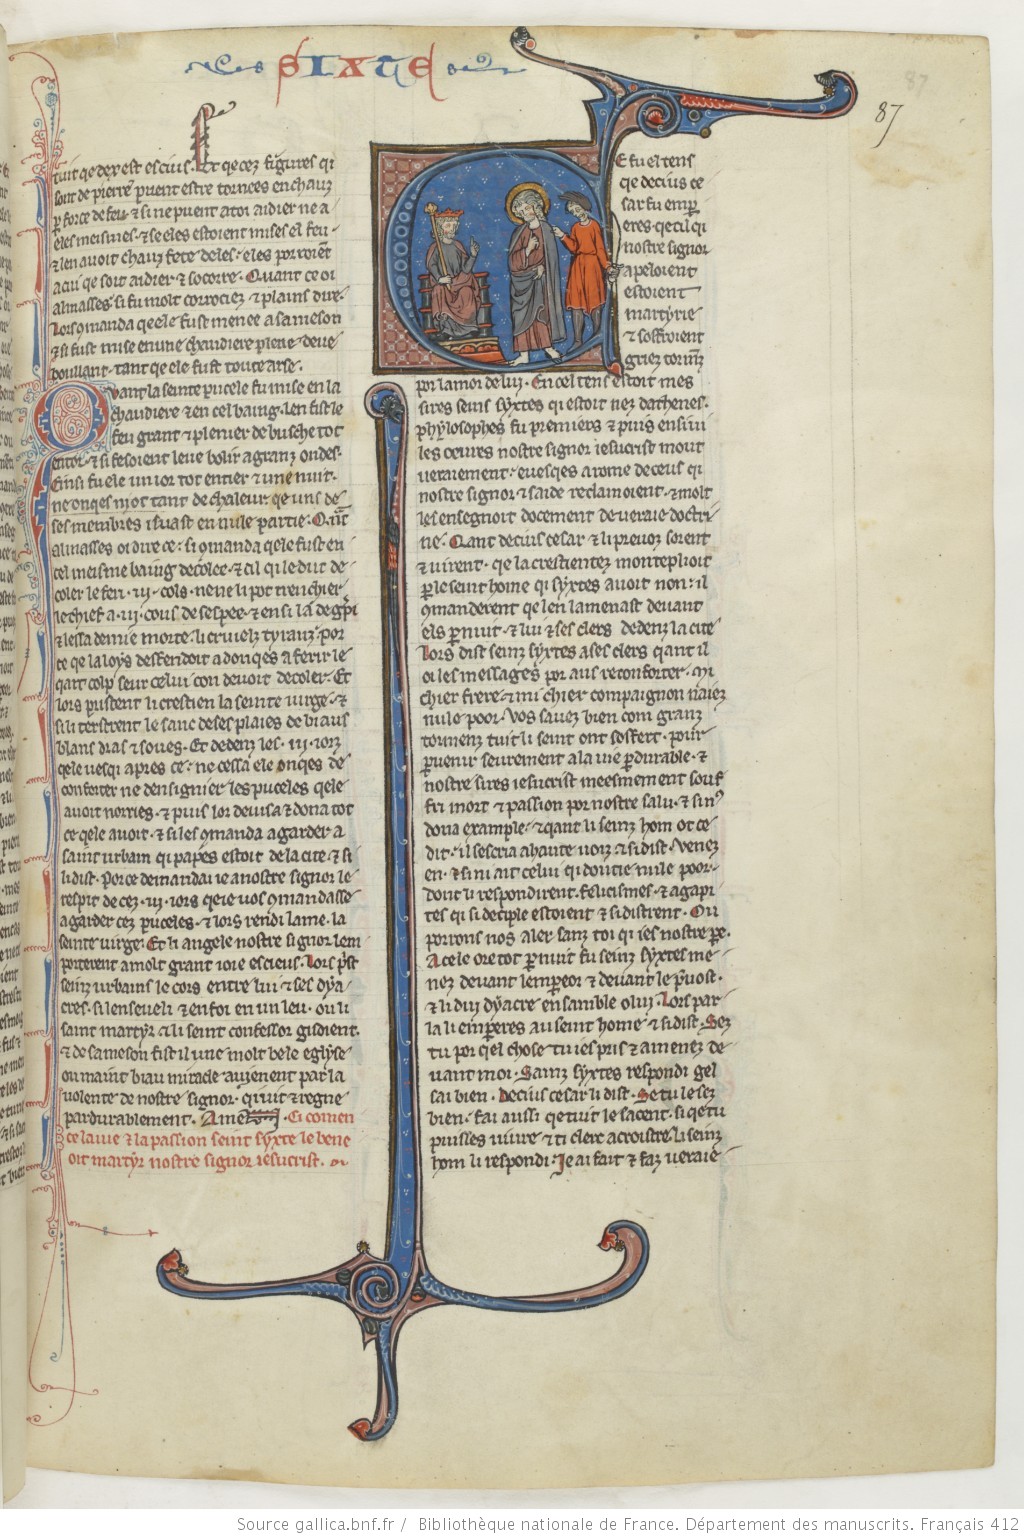 SIXTE
87
tuit qe dex est es cius. Et qe cez figures qi
sont de pierre puent estre tornees en chauz
p force de feu ⁊ si ne puent a toi aidier ne a
eles meismes. ⁊ se eles estoient mises el feu
⁊ len avoit chauz fete deles. eles porroiēt
a cui qe soit aidier ⁊ socorre. Quant ce oi
almasses. si fu molt corrociez ⁊ plains dire.
Lors ꝯmanda qe ele fust menee a sa meson
⁊ si fust mise en une chaudiere pleine deve
boullant. tant qe ele fust toute arse.
Quant la seinte pucele fu mise en la
chaudiere ⁊ en cel baing. len fist le
feu grant ⁊ plenier de busche tot
entor. ⁊ si fesoient leve bolir a granz ondes.
Einsi fu ele un ior tot entier ⁊ une nuit.
ne onqes ni ot tant de chaleur. qe uns de
ses membres isuast en nule partie. Qn̄t
almasses oi dire ce: si ꝯmanda qe le fust en
cel meisme baing decolee. ⁊ cil qi le dut de
coler le feri .iii. cols. ne ne li pot trenchier
le chief a .iii. cous de sespee. ⁊ ensi la degpi
⁊ lessa demie morte. li cruielz tyranz. por
ce qe la loys desfendoit adonqes a ferir le
qart colp seur celui con devoit decoler. Et
lors pristent li crestien la seinte virge. ⁊
si li terstrent le sanc de ses plaies de biaus
blans dras ⁊ soues. Et dedenz les .iii. iorz
qele vesqi apres ce. ne cessa ele onqes de
conforter ne densignier les puceles qele
avoit norries. ⁊ puis lor devisa ⁊ dona tot
ce qele avoit. ⁊ si les ꝯmanda a garder a
saint urbam qi papes estoit de la cite. ⁊ si
li dist. Por ce demandai ie a nostre signor le
respit de cez .iii. iors qe ie vos ꝯmandasse
a garder cez puceles. ⁊ lors rendi lame. la
seinte virge. Et li angele nostre signor lem
porterent a molt grant ioie es cieus. Lors pst
seinz urbains le cors entre lui ⁊ ses dya
cres. si lenseveli ⁊ enfoi en un leu. ou li
saint martyr ⁊ li seint confessor gisoient.
⁊ de sameson fist il une molt bele eglyse
ou maint biau miracle avienent par la
volente de nostre signor. qi vit ⁊ regne
pardurablement. Amen. Ci comen
ce la vie ⁊ la passion seint syxte le bene
oit martyr nostre signor iesucrist.
E fu el tens
qe decius ce
sar fu emp
eres. qe cil qi
nostre signor
apeloient
estoient
martyrie
⁊ soffroient
griez tormēz
por lamor de lui. En cel tens estoit mes
sires seins syxtes qi estoit nez dathenes.
phylosophes fu premiers ⁊ puis ensivi
les oevres nostre signor iesucrist mout
veraiement. evesqes a rome de ceus qi
nostre signor ⁊ saide reclamoient. ⁊ molt
les ensegnoit docement de veraie doctri
ne. Qant decius cesar ⁊ li prevoz sorent
⁊ virent. qe la crestientez monteplioit
p le seint home qi syxtes avoit non. il
ꝯmanderent qe len lamenast devant
els p nuit. ⁊ lui ⁊ ses clers dedenz la cite
Lors dist seinz syxtes a ses clers qant il
oi les messages por aus reconforter. Mi
chier frere ⁊ mi chier compaignon naiez
nule poor. vos savez bien com granz
tormenz tuit li seint ont soffert. pour
pvenir seurement a la vie pdurable. ⁊
nostre sires iesucrist meesmement souf
fri mort ⁊ passion por nostre salu. ⁊ si nꝰ
dona example. ⁊ qant li seinz hom ot ce
dit. il sescria a haute voiz ⁊ si dist. Venez
en. ⁊ si ni ait celui qi doutie nule poor.
dont li respondirent. felicismes. ⁊ agapi
tes qi si deciple estoient ⁊ si distrent. Ou
porrons nos aler sanz toi qi ies nostre pe.
A cele ore tot p nuit fu seinz syxtes me
nez devant lempeor ⁊ devant le pvost.
⁊ li dui dyacre ensamble o lui. Lors par
la li emperes au seint home ⁊ si dist. Sez
tu por qel chose tu ies pris ⁊ amenez de
vant moi. Sainz syxtes respondi gel
sai bien. Decius cesar li dist. Se tu le sez
bien. fai aussi qe tuit le sacent. si qe tu
puisses vivre ⁊ ti clerc acroistre. li seinz
hom li respondi. Je ai fait ⁊ faz veraie
Source gallica.bnf.fr / Bibliothèque nationale de France. Département des manuscrits. Français 412